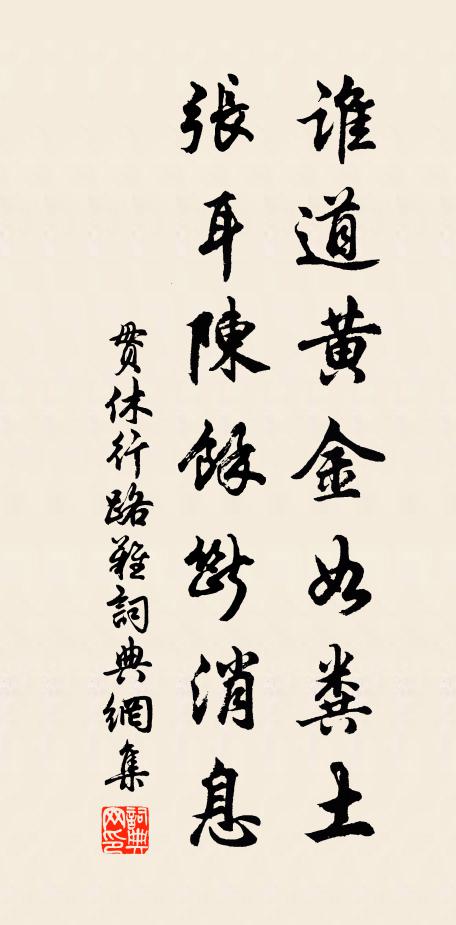 誰道黄金如糞土
張耳陳餘斷消息
貫休行路難詞典網集
詞典网印